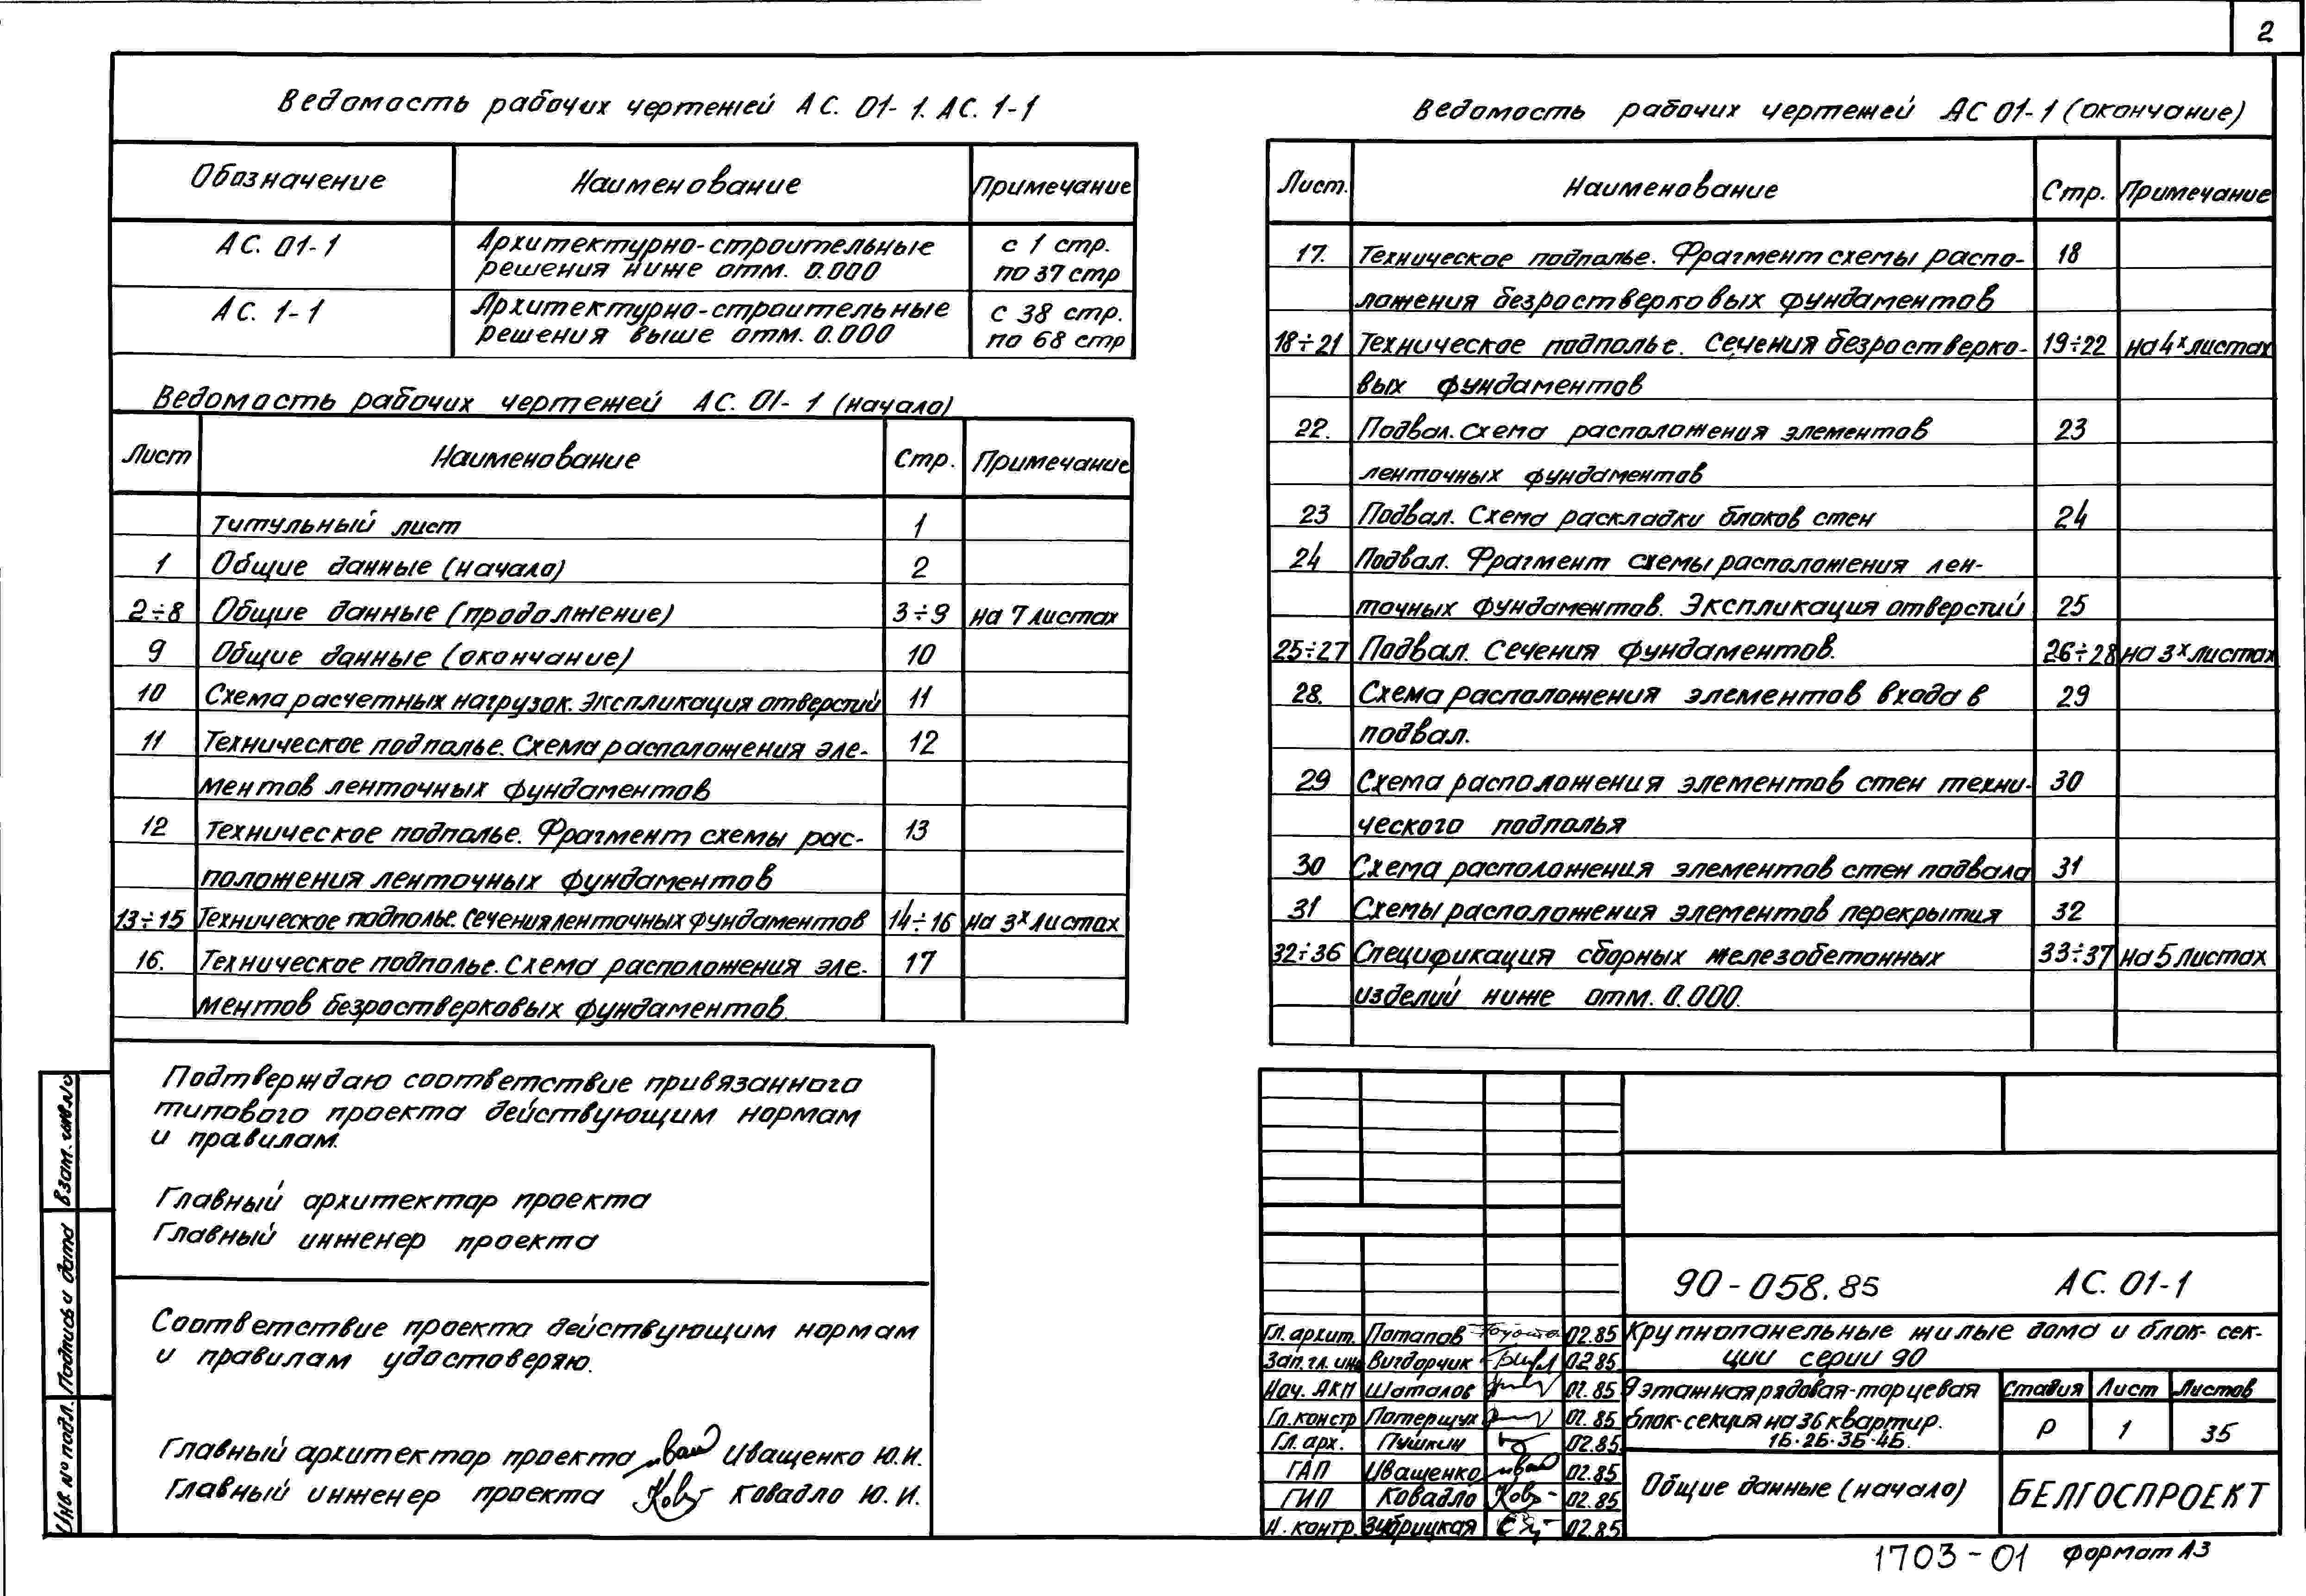 2
Ведомость рабочих чертежей АС. 01-1. АС. 1-1
Обозначение Наименование Примечание
АС. 01-1 Архитектурно-строительные с 1 стр.
решения ниже отм. 0.000 по 37 стр
АС. 1-1 Архитектурно-строительные с 38 стр.
решения выше отм. 0.000 по 68 стр
Ведомость рабочих чертежей АС. 01-1 (начало)
Лист Наименование Стр. Примечание
Титульный лист 1
1 Общие данные (начало) 2
2÷8 Общие данные (продолжение) 3÷9 на 7 листах
9 Общие данные (окончание) 10
10 Схема расчетных нагрузок. Экспликация отверстий 11
11 Техническое подполье. Схема расположения эле- 12
ментов ленточных фундаментов
12 Техническое подполье. Фрагмент схемы рас- 13
положения ленточных фундаментов
13÷15 Техническое подполье. Сечения ленточных фундаментов 14÷16 на 3х листах
16. Техническое подполье. Схема расположения эле- 17
ментов безростверковых фундаментов.
Ведомость рабочих чертежей АС 01-1 (окончание)
Лист. Наименование Стр. Примечание
17. Техническое подполье. Фрагмент схемы распо- 18
ложения безростверковых фундаментов
18÷21 Техническое подполье. Сечения безростверко- 19÷22 на 4х листах
вых фундаментов
22. Подвал. Схема расположения элементов 23
ленточных фундаментов
23 Подвал. Схема раскладки блоков стен 24
24 Подвал. Фрагмент схемы расположения лен-
точных фундаментов. Экспликация отверстий 25
25÷27 Подвал. Сечения фундаментов. 26÷28 на 3х листах
28. Схема расположения элементов входа в 29
подвал.
29 Схема расположения элементов стен техни- 30
ческого подполья
30 Схема расположения элементов стен подвала 31
31 Схемы расположения элементов перекрытия 32
32÷36 Спецификация сборных железобетонных 33÷37 на 5 листах
изделий ниже отм. 0.000.
Подтверждаю соответствие привязанного
типового проекта действующим нормам
и правилам.
Главный архитектор проекта
Главный инженер проекта
Соответствие проекта действующим нормам
и правилам удостоверяю.
Главный архитектор проекта Иващенко Ю.И.
Главный инженер проекта Ковадло Ю.И.
Взам. инв.№
Подпись и дата
Инв. № подл.
90-058.85 АС. 01-1
Гл. архит. Потапов 02.85
Зап. гл. инж Вигдорчик 02.85
Нач. АКП Шаталов 02.85
Гл. констр Потерщук 02.85
Гл. арх. Пушкин 02.85
ГАП Иващенко 02.85
ГИП Ковадло 02.85
Н. контр. Зубрицкая 02.85
Крупнопанельные жилые дома и блок-сек-
ции серии 90
9 этажная рядовая-торцевая
блок-секция на 36 квартир.
1Б-2Б-3Б-4Б.
Стадия Лист Листов
Р 1 35
Общие данные (начало)
БЕЛГОСПРОЕКТ
1703-01 Формат А3